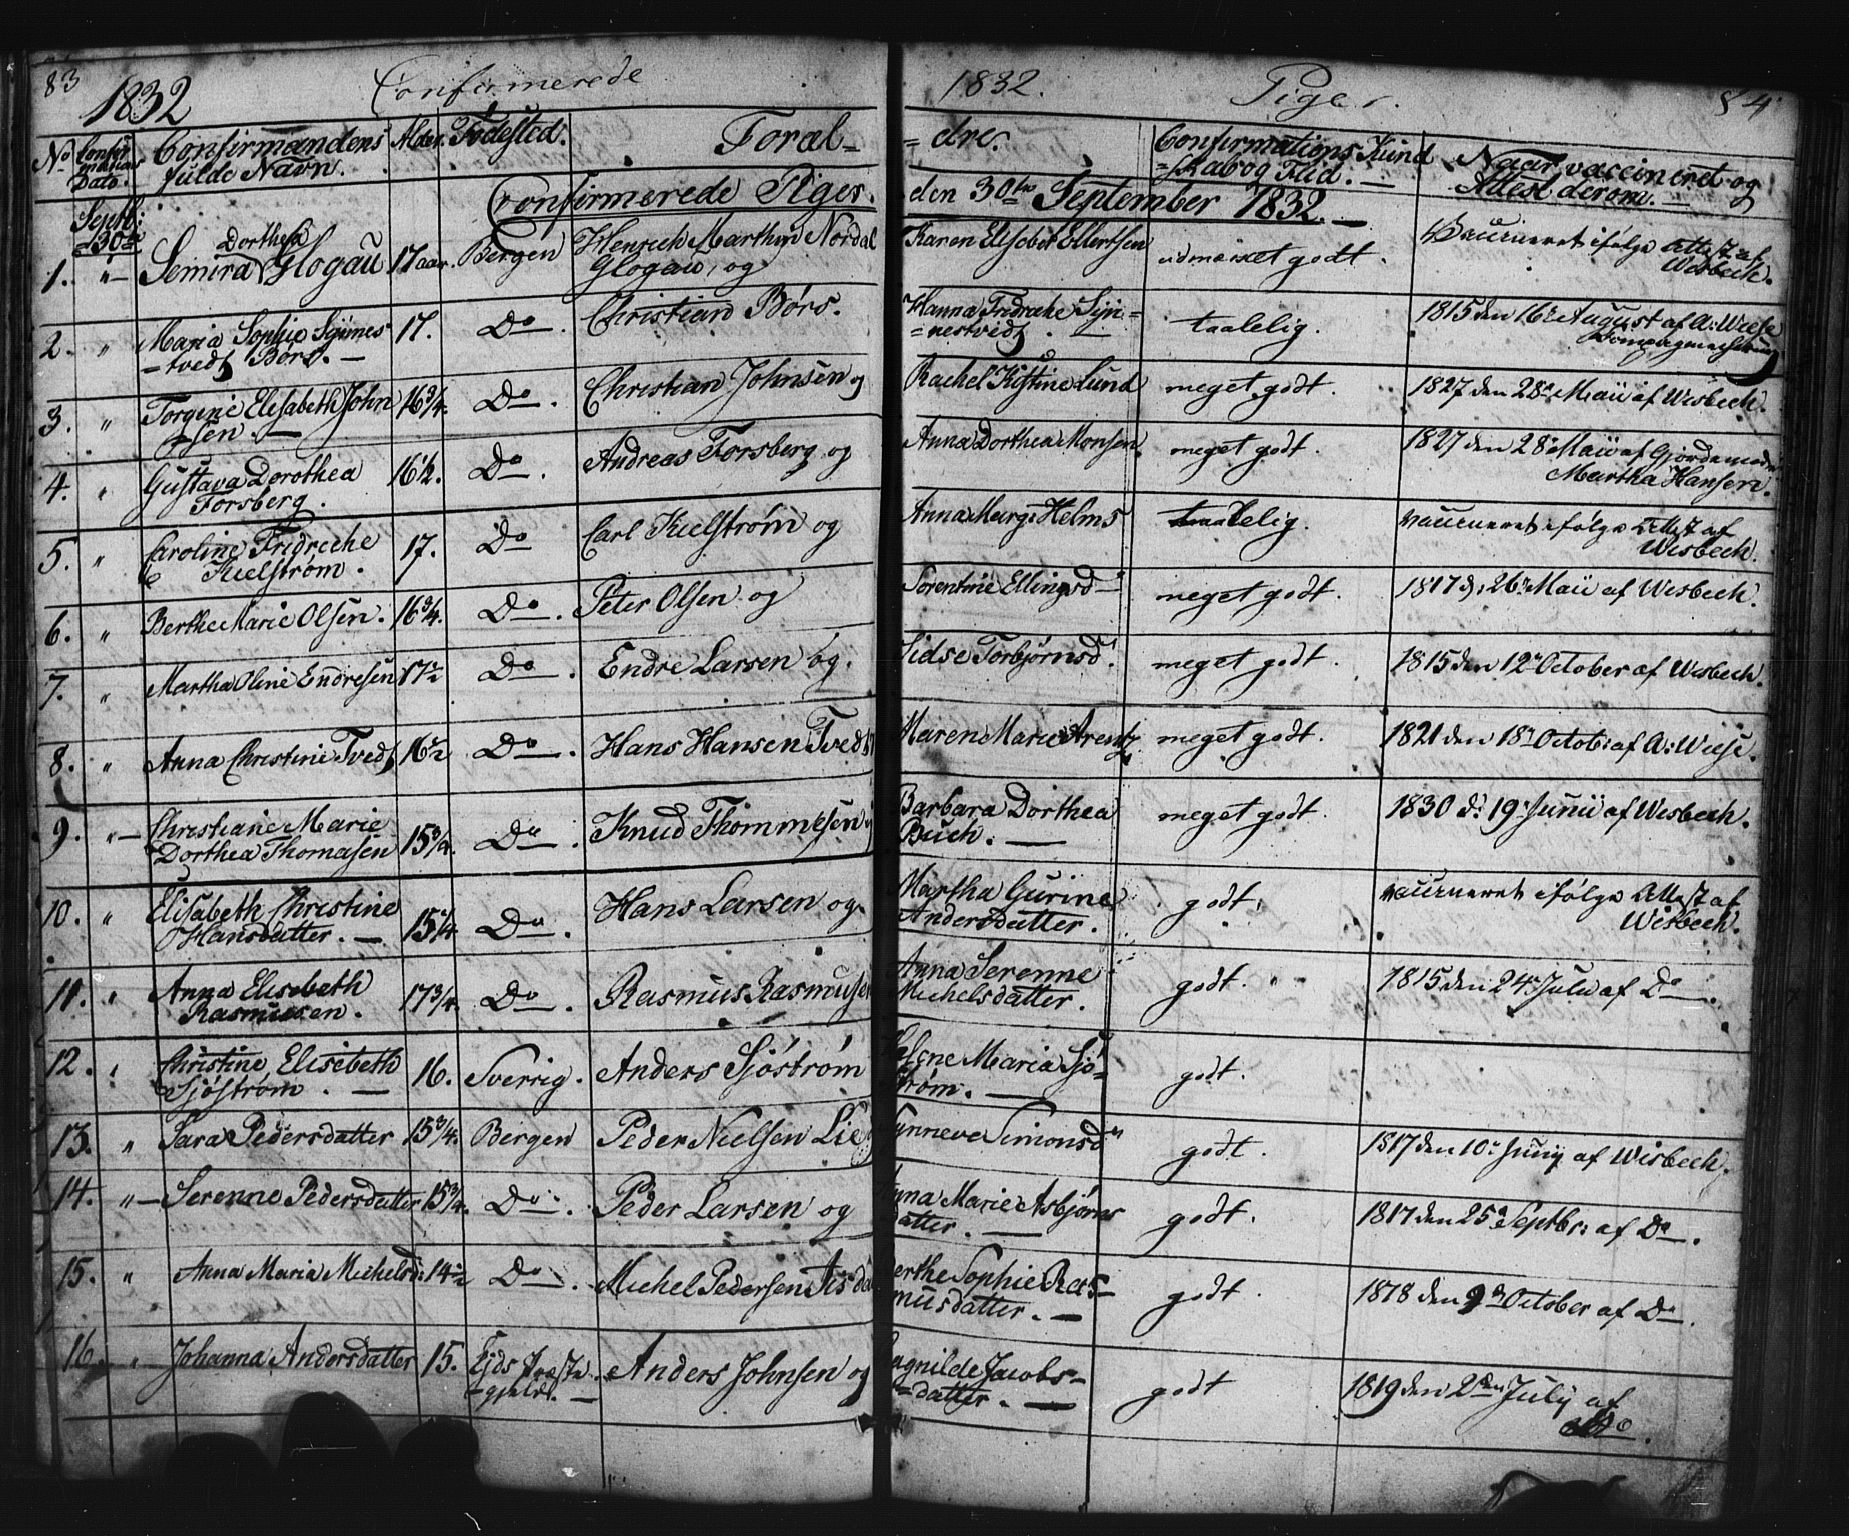 83
1832 Confirmerede
1832. Piger. 84
No Confirmations Dato. Confirmandens fulde Navn. Alder. Fødested. Foræl-
-dre. Confirmations Kund-skab og Flid. — Naar vaccineret og Attest derom. —
Confirmerede Piger.
den 30te September 1832. —
Septbr:
1. 30te "— Dorthea Semira Glogau 17 aar. Bergen Henrich Marthin Nordal Glogau, og
Karen Elisabet Ellertsen udmærket godt. Vaccineret ifølge Attest af Wisbech.
2. " Maria Sophie Synnes-tvedt Børs. — 17. Do. Christian Børs.
Hanna Fredrche Syn-nestvedt. — taalelig. 1815 den 16de August af A: Wiese
3. " Torgine Elisabeth John-sen. — 16¾. Do. Christian Johnsen og
Rachel Kistine Lund meget godt. 1827 den 28de Maii af Wisbech.
4. " Gustava Dorothea Forsberg. 16½. Do. Andreas Forsberg og
Anna Dorthea Monsen. meget godt. 1827 den 28de Maii af Gjordemoder Martha Hansen.
5. " Caroline Fredricke Kielstrøm. 17. Do Carl Kielstrøm og
Anna Marg: Helms taalelig. vaccineret ifølge Attest af Wisbech.
6. " Berthe Marie Olsen. 16¾. Do. Peter Olsen og
Sorentine Ellingsd— meget godt. 1817 d: 26de Maii af Wisbech.
7. " Martha Oline Endresen 17½ Do. Endre Larsen og.
Sidse Torbjørnsd. meget godt. 1815 den 12te October af Wisbech.
8. " Anna Christine Tvedt 16½ Do. Hans Hansen Tvedt
Maren Marie Arentz meget godt. 1821 den 18de Octob: af A: Wiese.
9. "— Christiane Marie Dorthea Thomasen 15¾. Do. Knud Thommesen
Barbara Dorthea Buch. — meget godt. 1830 d: 19de Junii af Wisbech.
10. " Elisabeth Christine Hansdatter. — 15¼. Do. Hans Larsen og
Martha Gurine Andersdatter. godt. vaccineret ifølge Attest af Wisbech.
11. " Anna Elisebeth Rasmussen. 17¾. Do. Rasmus Rasmusen
Anna Serenne Michelsdatter. godt. 1815 den 24de Julii af Do.
12. " Christine Elisebeth Sjøstrøm. — 16. Sverrig. Anders Sjøstrøm
Helene Maria Sjø-strøm. — godt.
13. " Sara Pedersdatter 15¾. Bergen Peder Nielsen Lie
Synneve Simonsd godt. 1817 den 10de Junij af Wisbech.
14. "— Serenne Pedersdatter 15¾. Do. Peder Larsen og
Anna Marie Asbjørns datter. — godt. 1817 den 25de Septbr: af Do.
15. " Anna Maria Michelsd: 14½ Do. Michel Pedersen
Berthe Sophie Ras-musdatter. — godt. 1818 den 9de October af Do.
16. " Johanna Andersdatter 15. -gjeld. — Anders Johnsen og
Jacobs-datter. — godt 1819 den 2den July af Do.